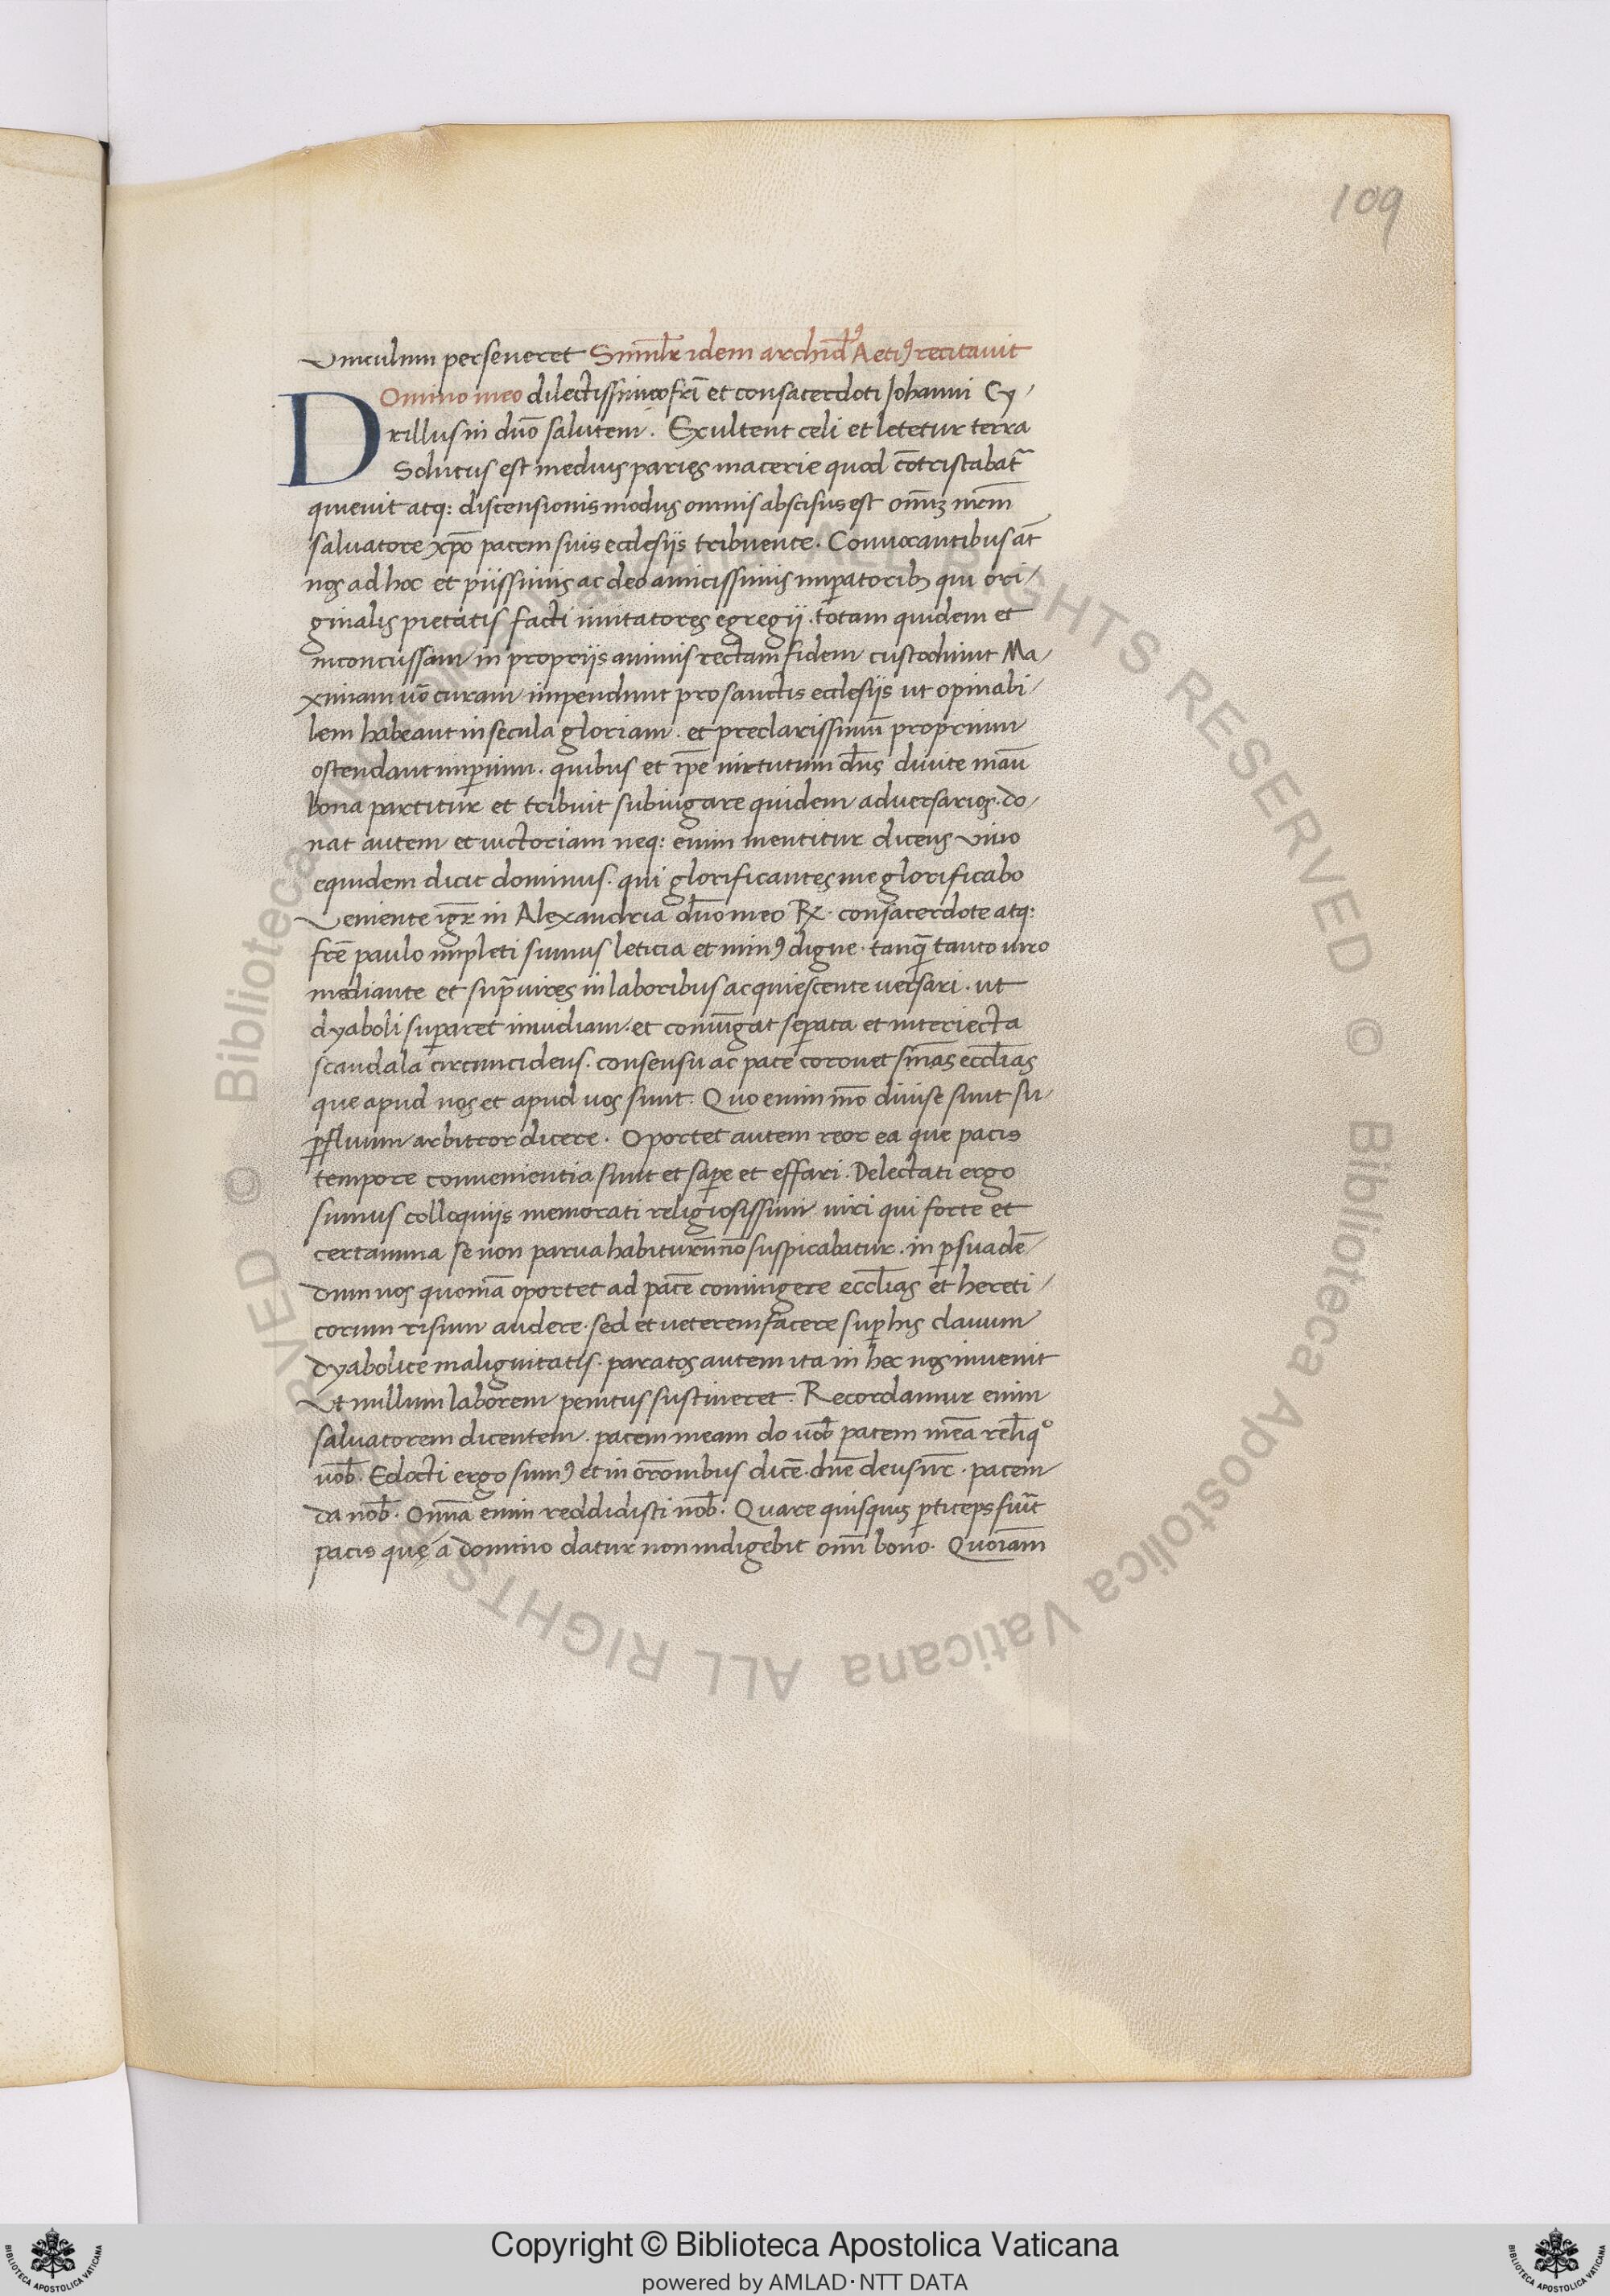 109
Vinculum perseueret Simil̄r idem archid⁹ Aeti⁹ recitauit
DOmino meo dilectissimo fr̄i et consacerdoti Johanni Cy/
rillus in dn̄o salutem. Exultent celi et letetur terra
Solutus est medius paries macerie quod cōtristabat᷑
quieuit atq: discensionis modus omnis abscisus est omīuꝫ nr̄m
saluatore xp̄o pacem suis ecclesijs tribuente. Conuocantibus āt
nos ad hoc et pijssimis ac deo amicissimis imꝑatoribꝫ qui ori/
ginalis pietatis facti imitatores egregij. totam quidem et
inconcussam in proprijs animis rectam fidem custodiunt Ma/
ximam uō curam impendunt pro sanctis ecclesijs ut opinabi/
lem habeant in secula gloriam. et preclarissimū proprium
ostendant imꝑium. quibus et ip̄e uirtutum dn̄s diuite manū
bona partitur et tribuit subiugare quidem aduersarios. do/
nat autem et uictoriam neq: enim mentitur dicens Viuo
equidem dicit dominus. qui glorificantes me glorificabo
Veniente igr̄ in Alexandria dn̄o meo R̷x. consacerdote atq:
fr̄e paulo impleti sumus leticia et min⁹ digne. tanq̄ tanto uiro
mediante et supᷓ uires in laboribus acquiescente uersari. ut
dyaboli suꝑaret inuidiam. et coniūgat seꝑata et interiecta
scandala circuncidens. consensu ac pace coronet sīnas eccl̄ias
que apud nos et apud uos sunt. Quo enim mō diuise sunt su/
ꝑfluum arbitror dicere. Oportet autem reor ea que pacis
tempore conuenientia sunt et saꝑe et effari. Delectati ergo
sumus colloquijs memorati religiosissimi uiri qui forte et
certamina se non parua habiturum nō suspicabatur. in ꝑsuadē/
dum uos quoniā oportet ad pacē coniungere eccl̄ias et hereti/
corum risum audere. sed et ueterem facere suꝑ his clauum
dyabolice malignitatis. paratos autem ita in hec nos inuenit
Vt nullum laborem penitus sustineret. Recordamur enim
saluatorem dicentem. pacem meam do uob̄ pacem meā relīqº
uob̄. Edocti ergo sum⁹ et in orōnibus dicē. dn̄e deus nr̄. pacem
da nob̄. Omīa enim reddidisti nob̄. Quare quisquis ꝑticeps fuīt
pacis quę a domino datur non indigebit omī bono. Quoīam
Copyright © Biblioteca Apostolica Vaticana
powered by AMLAD·NTT DATA